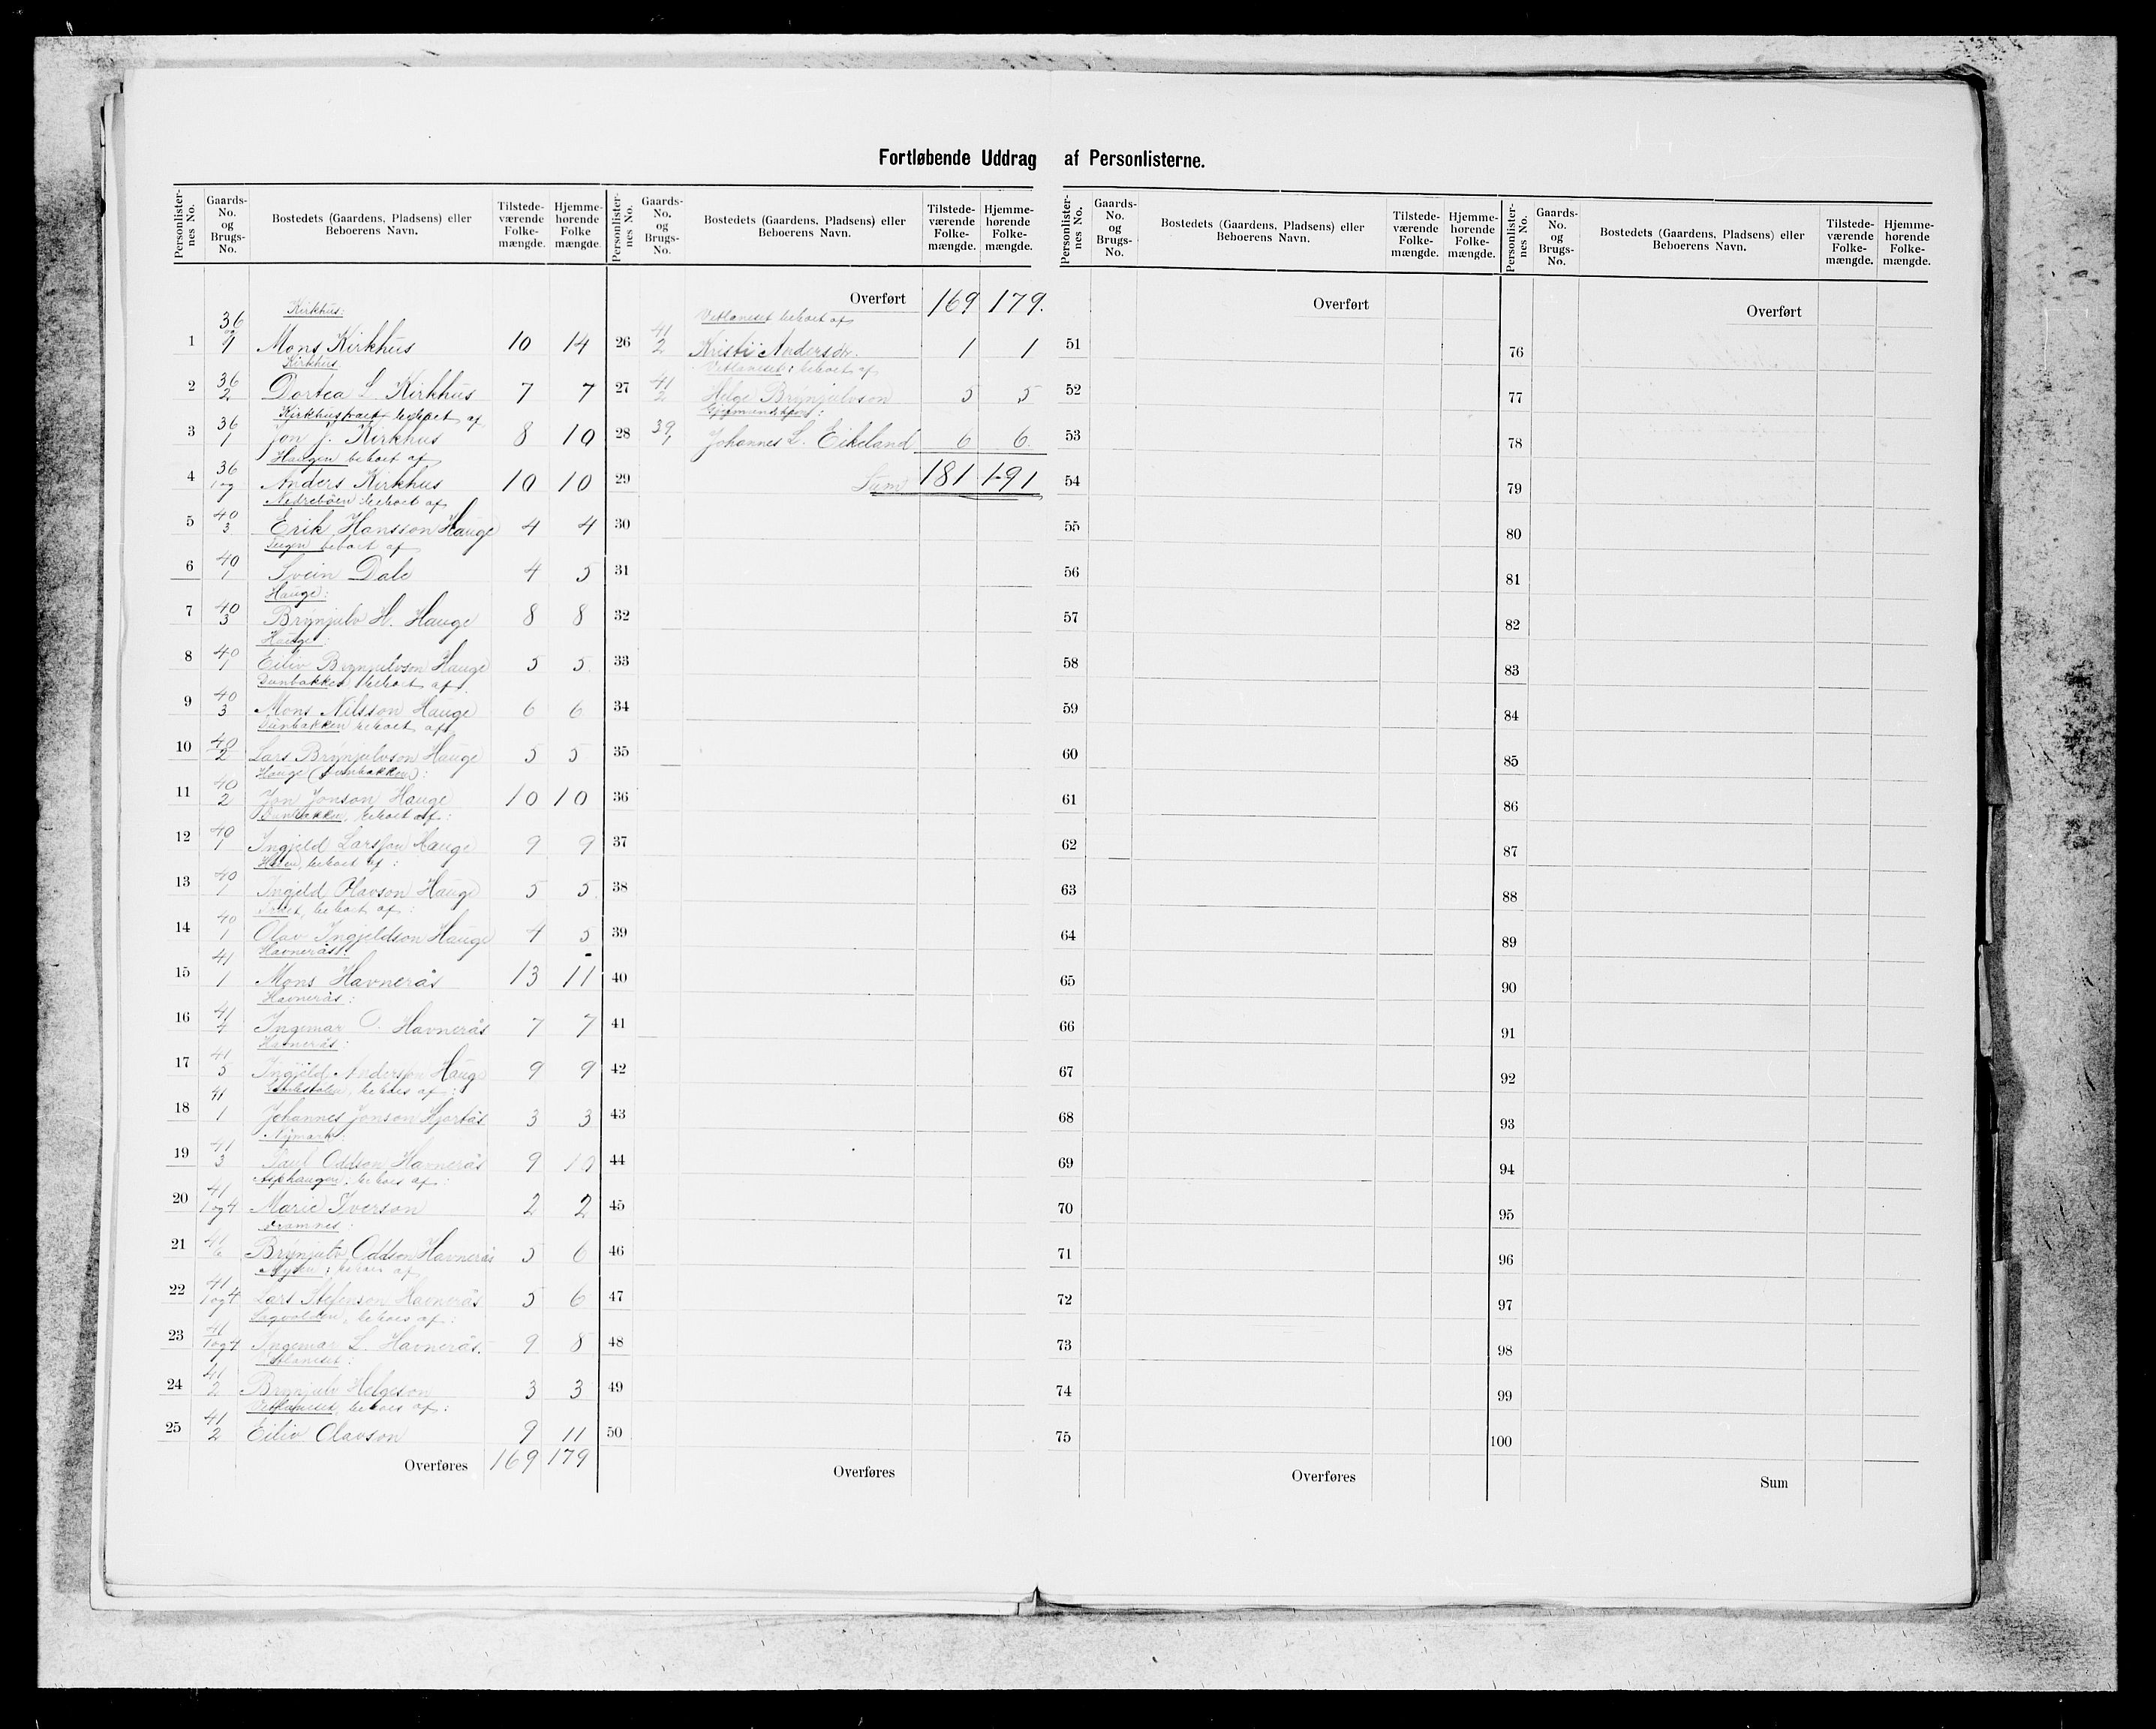 Fortløbende Uddrag af Personlisterne.
Personlister-nes No. Gaards-No. og Brugs-No. Bostedets (Gaardens, Pladsens) eller Beboerens Navn. Tilstede-værende Folke-mængde. Hjemme-hørende Folke mængde.
Kirkhus:
1 36/1 Mons Kirkhus 10 14
Kirkhus.
2 36/2 Dortea L. Kirkhus 7 7
af
3 36/1 Jon J. Kirkhus 8 10
Haugen beboet af
4 36/1 og Anders Kirkhus 10 10
Nedrebøen beboet af
5 40/3 Erik Hansson Hauge 4 4
beboet af
6 40/1 Svein Dale 4 5
Hauge:
7 40/3 Brynjulv H. Hauge 8 8
Hauge:
8 40/1 Eiliv Brynjulvson Hauge 5 5
beboet af
9 40/3 Mons Nilsson Hauge 6 6
beboet af
10 40/2 Lars Brynjulvson Hauge 5 5
Hauge
11 40/2 Jon Jonson Hauge 10 10
beboet af:
12 40/1 Ingjeld Larsson Hauge 9 9
beboet af:
13 40/1 Ingjeld Olavson Hauge 5 5
beboet af:
14 40/1 Olav Ingjeldson Hauge 4 5
Havnerås:
15 41/1 Mons Havnerås 13 11
Havnerås:
16 41/4 Ingemar O. Havnerås 7 7
Havnerås:
17 41/5 Ingjeld Anderson Hauge 9 9
beboes af:
18 41/1 Johannes Jonson Hjortås 3 3
Nymark:
19 41/3 Paul Oddson Havnerås 9 10
Asphaugen, beboes af:
20 41/1 og 4 Marie Iverson 2 2
Framnes:
21 41/6 Brynjulv Oddson Havnerås 5 6
beboes af
22 41/1 og 4 Lars Stefenson Havnerås 5 6
beboes af:
23 41/1 og 4 Ingemar L. Havnerås. 9 8
Vetlaneset:
24 41/2 Brynjulv Helgeson 3 3
Vetlaneset, beboes af:
25 41/2 Eiliv Olavson 9 11
Overføres 169 179
Personlister-nes No. Gaards-No. og Brugs-No. Bostedets (Gaardens, Pladsens) eller Beboerens Navn. Tilstede-værende Folke-mængde. Hjemme-hørende Folke-mængde.
Overført 169 179.
Vetlaneset beboet af
26 41/2 Kristi Andersdtr. 1 1
Vetlaneset: beboet af
27 41/2 Helge Brynjulvson 5 5
28 39/1 Johannes L. Eikeland 6 6.
29 Sum 181 191
30
31
32
33
34
35
36
37
38
39
40
41
42
43
44
45
46
47
48
49
50
Overføres
Personlister-nes No. Gaards-No. og Brugs-No. Bostedets (Gaardens, Pladsens) eller Beboerens Navn. Tilstede-værende Folke-mængde. Hjemme-hørende Folke-mængde.
Overført
51
52
53
54
55
56
57
58
59
60
61
62
63
64
65
66
67
68
69
70
71
72
73
74
75
Overføres
Personlister-nes No. Gaards-No. og Brugs-No. Bostedets (Gaardens, Pladsens) eller Beboerens Navn. Tilstede-værende Folke-mængde. Hjemme-hørende Folke-mængde.
Overført
76
77
78
79
80
81
82
83
84
85
86
87
88
89
90
91
92
93
94
95
96
97
98
99
100
Sum